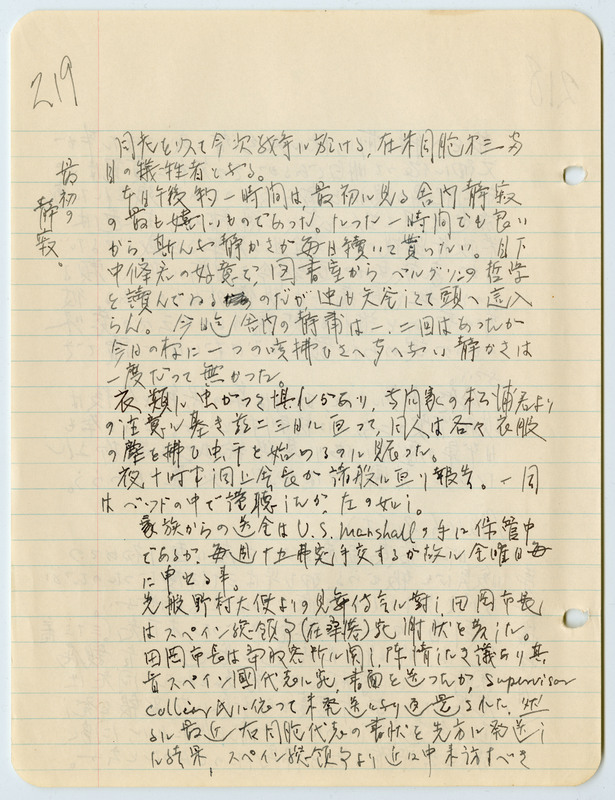 219
最初の
静寂。
同氏を以て今次戦争に於ける、在米同胞第三番
目の犠牲者とする。
本日午後約一時間は、最初に見る舎内静寂
の最も嬉しいものであった。たった一時間でも良い
から、斯んな静かさが毎日續いて貰いたい。目下
中條君の好意で、図書室からベルグソンの哲学
を讀んでゐるのだが中々矢張りとて頭へ這入
らん。今迄舎内の静粛は一、二回はあったが
今日の様に一つの咳拂ひさへ多へない静かさは
一度だって無かった。
衣類に虫がつく惧れがあり、専問家の松浦君より
の注意に基き茲二三日に亘って、同人は各々衣服
の塵を拂ひ虫干を始めるのに賑った。
夜十時半洞上会長が諸般に亘り報告。一同
はベッドの中で謹聴したが、左の如し。
家族からの送金はU.S. Marshallの手に保管中
であるが、毎週十五弗宛手交するが故に金曜日毎
に申出る事。
先般野村大使よりの見舞傳言に對し、田岡市長
はスペイン総領事(在桑港)宛謝状を発した。
田岡市長は当収容所に関し、陳情したき議あり其
旨スペイン國代表に宛、書面を送ったが、Supervisor
Collier氏に依って未発送により返還された。然
るに最近在同胞代表の書状を先方に発送し
た結果、スペイン総領事より近日中来訪すべき